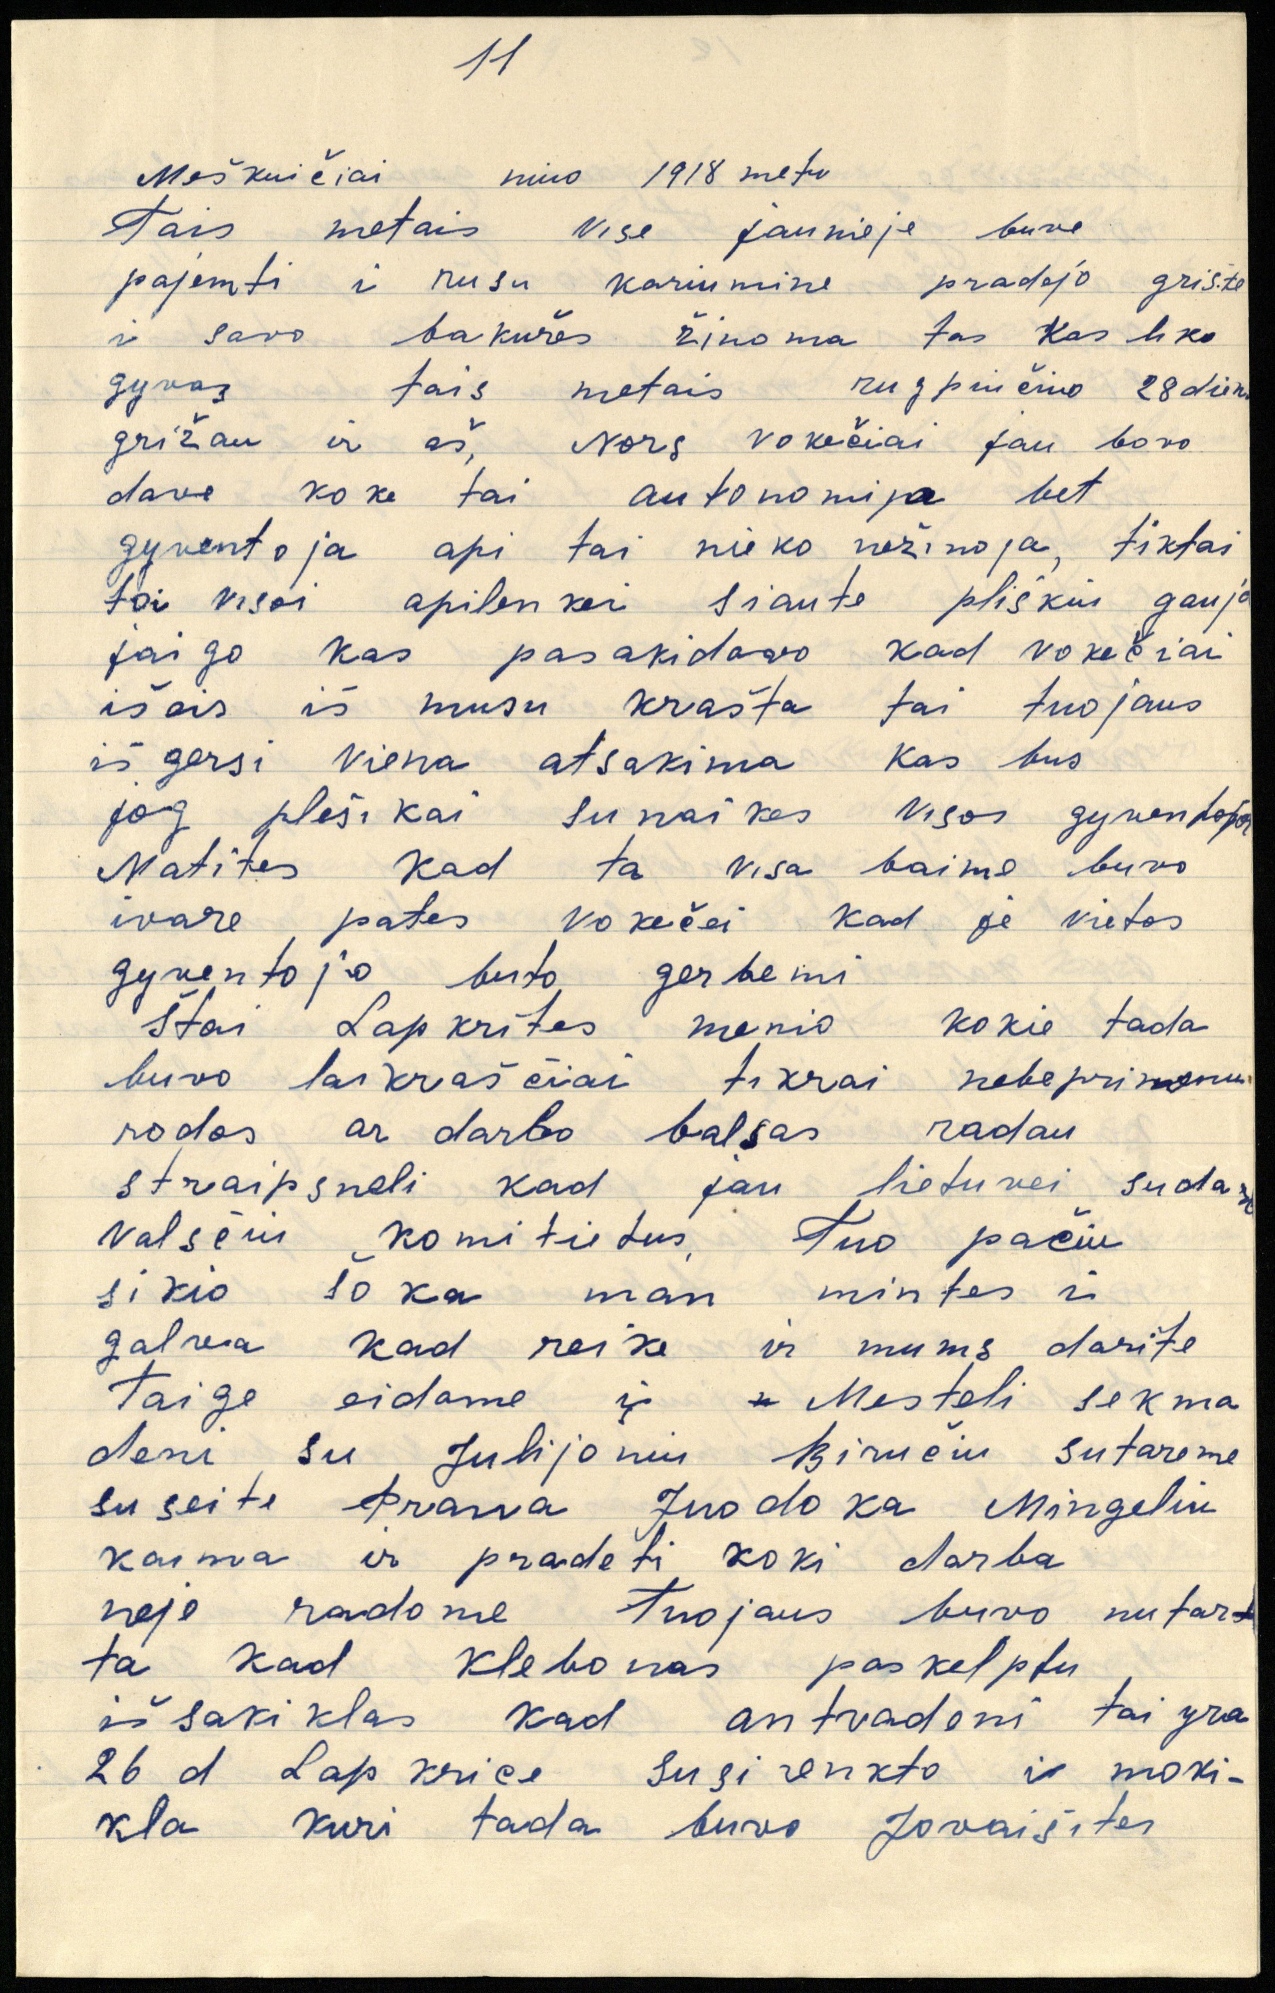 11
Meškuičiai nuo 1918 metu
Tais metais vise jaunieje buve
pajemti i rusu kariumine pradejo grište
i savo bakužes žinoma tas kas liko
gyvas tais metais rugpiučiuo 28 dien
grižau ir aš, Nors vokečiai jau bovo
dave koke tai autonomija bet
gyventoja api tai nieko nežinoja, tiktai
tai visoi apilenkei siaute pliškiu gaujo
jaigo kas pasakidavo kad vokečiai
išeis iš musu krašta tai tuojaus
išgersi viena atsakima kas bus
jog plešikai sunaikes visos gyventojos
Matites kad ta visa baime buvo
ivare pates vokečei kad je vietos
gyventojo buto gerbemi
Štai Lapkrites menio kokie tada
buvo laikraščiai tikrai nebeprimenu
rodos ar darbo balsas radau
straipsneli kad jau lietuvei sudare
valsčiu komitietus, Tuo pačiu
sikio šoka man mintes i
galva kad reike ir mums darite
Taige eidame i Mesteli sekma
deni su Julijoniu Biručiu sutareme
suseite Prana Juodoka Mingeliu
kaima ir pradeti koki darba
neje radome Tuojaus buvo nutar
ta kad klebonas poskelptu
iš sakiklas kad antradeni tai yra
26 d Lapkrice susirenkto i moki-
kla kuri tada buvo Jovaišites